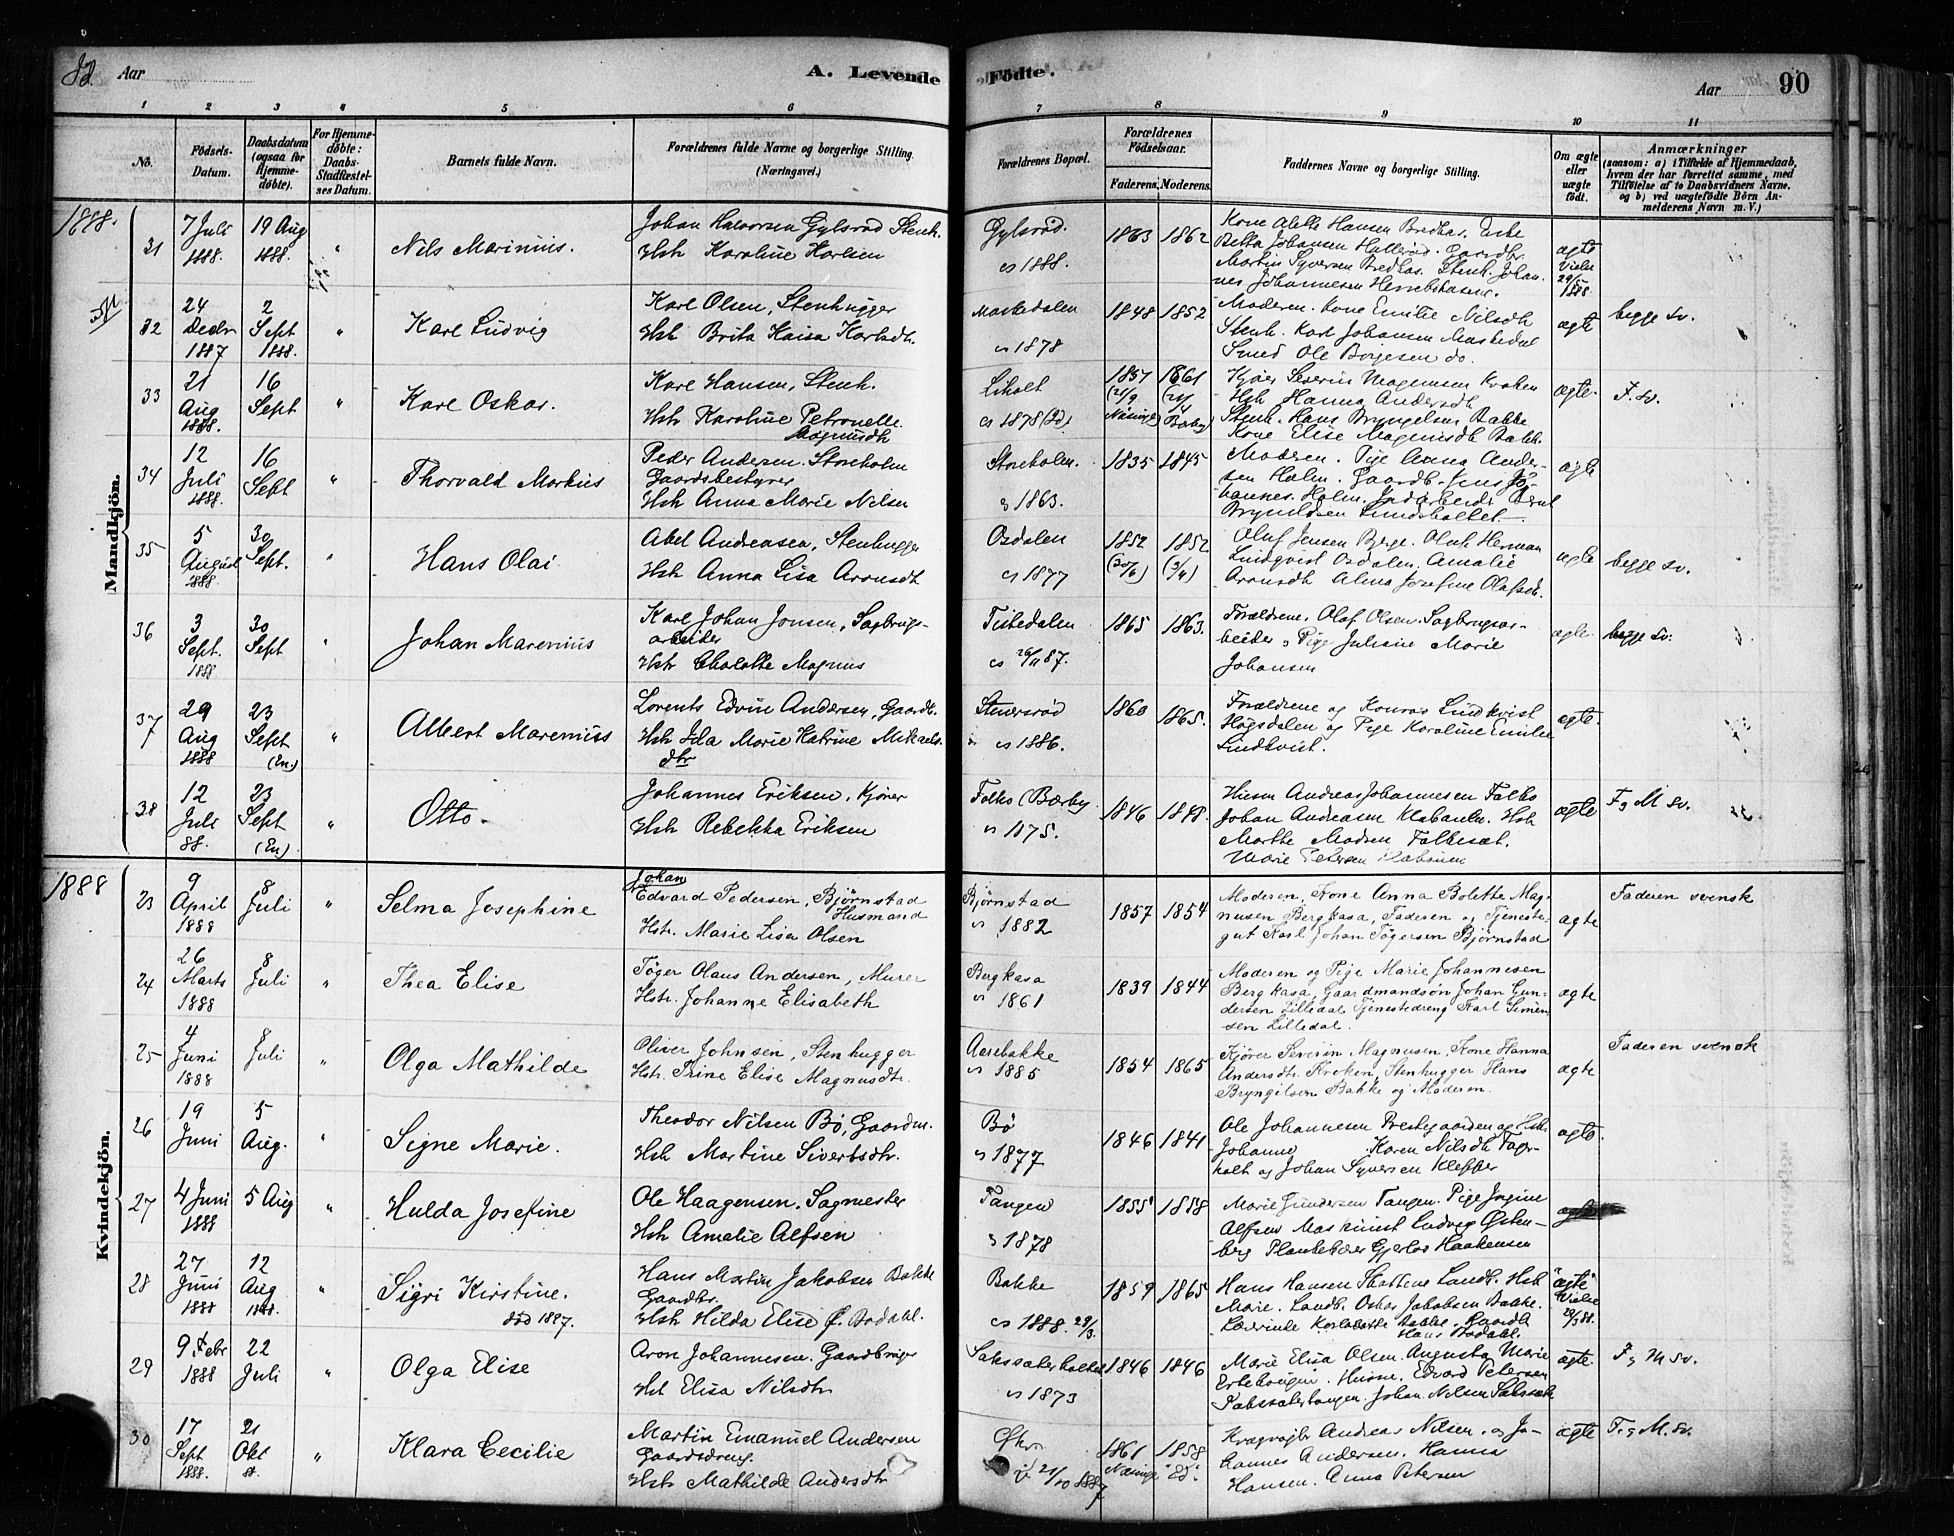 Aar
A. Levende
Födte.
Aar
90
1 2 3 4 5 6 7 8 9 10 11
No.
Födsels-
Datum.
Daabsdatum
(ogsaa for
Hjemme-
døbte).
For Hjemme-
døbte:
Daabs-
Stadfæstel-
ses Datum.
Barnets fulde Navn.
Forældrenes fulde Navne og borgerlige Stilling.
(Næringsvei.)
Forældrenes Bopæl.
Forældrenes
Födselsaar.
Faderens. Moderens.
Faddernes Navne og borgerlige Stilling.
Om ægte
eller
uægte
födt.
Anmærkninger
(saasom: a) i Tilfælde af Hjemmedaab,
hvem der har forrettet samme, med
Tilföielse af to Daabsvidners Navne,
og b) ved uægtefödte Börn An-
melderens Navn m. V.)
1888.
Mandkjön.
31
7 Juli
1888.
19 Aug
1888.
"
Nils Marinius.
Johan Halvorsen Gylsrød Stenh.
Hst Karoline Karlsen
Gylsrød.
1888.
1863 1862
Kone Alette Hansen Bredhol.
Betta Johansen Hallerød. Gaardbr.
Martin Syversen Bredhol. Stenh. Johan-
nes Johannesen
ægte
Vielse
29/5
1888
32
24
Decbr
1887
2
Sept
1888.
"
Karl Ludvig
Karl Olsen, Stenhugger
Hst Brita Kaisa Karlsdt.
Maskedalen
1878
1848 1852
Moderen. Kone Emilie Nilsdt
Stenh. Karl Johansen Maskedal
Smed Ole Borgesen do.
ægte
begge Sv.
33
21
Aug
1888.
16
Sept
"
Karl Oskar.
Karl Hansen, Stenh.
Hst Karoline Petronelle
Magnusdt
Liholt
1878
1857 1861
Kjører Severin Magnusen Kroken
Hst Hanna Andersdt
Stenh. Hans Bryngelsen Bakke
Kone Elise Magnusdt Bakk.
ægte.
F. Sv.
34
12
Juli
1888.
16
Sept
"
Thorvald Markus
Peder Andersen. Storeholm
Gaardsbestyrer
Hst Anna Marie Nilsen
Storeholm.
1863.
1835 1845
Moderen. Pige Anna Ander-
sen Holm. Gaardb. Jens Jo-
hannes. Holm. Indarbeider Bernt
Bryнildsen
ægte
35
5
August
1888
30
Sept.
"
Hans Olai
Abel Andreasen, Stenhugger
Hst Anna Lisa Arensdt
Osdalen
1877
1852 1852
(20/6) (3/4)
Oluf Jensen Berge. Oluf Herman
Lindqvist Osdalen, Amalie
Arensdt Alma Josefine Olafsdt.
ægte
begge Sv.
36
3
Sept.
1888
30
Sept
"
Johan Marenius
Karl Johan Jonsen, Sagbrugs-
arbeider
Hst Charlotte Magnus
Tistedalen
26/11 87.
1865 1863.
Forældrene, Olaf Olsen. Sagbrugsar-
beider, Pige Juliane Marie
Johansen
ægte.
begge Sv.
37
29
Aug
1888
23
Sept
(En.)
"
Albert Marenius
Lorents Edvin Andersen, Gaardb.
Hst Ida Marie Katrine Mikaels
dtr
Stenersrød
1886.
1860 1865.
Forældrene og Konrad Lindkvist
Høgsdalen og Pige Karoline Emilie
Lindkvist.
ægte.
38
12
Juli
88.
23
Sept
(En)
"
Otto.
Johannes Eriksen, Kjører
Hst Rebekka Eriksen
Folkø (Bærby
1875.
1846 1848.
Husm Andreas Johannesen Folkø
Johan Andreasen Hst
Marthe Madsen Folkesæt.
Marie Petersen
ægte
F. g M Sv.
1888
Kvindekjön.
23
9
April
1888
8
Juli
"
Selma Josephine
Johan
Edvard Pedersen, Bjørnstad
Husmand
Hstr. Marie Lisa Olsen
Bjørnstad
1882
1857 1854
Moderen, Kone Anna Bolette Mag-
nusen Bergkasa, Faderen og Tjeneste-
gut Karl Johan Tøgersen Bjørnstad
ægte
Faderen svensk
24
26
Marts
1888
8
Juli
"
Thea Elise
Tøger Olaus Andersen, Murer
Hstr. Johanne Elisabeth
Bergkasa
1861
1839 1844
Moderen og Pige Marie Johannesen
Bergkasa, Gaardmandsøn Johan Gun-
dersen Lilledal Tjenestedreng Karl Simen-
sen Lilledal.
ægte
25
4
Juni
1888
8
Juli
"
Olga Mathilde
Oliver Johnsen, Stenhugger
Hstr. Trine Elise Magnusdtr.
Aarebakke
1885
1854 1865
Kjører Severin Magnusen, Kone Hanna
Andersdtr. Kroken, Stenhugger Hans
Bryngilsen Bakke og Moderen.
ægte
Faderen svensk
26
19
Juni
5
Aug.
"
Signe Marie.
Theodor Nilsen Bø, Gaardm.
Hst Martine Sivertsdtr.
Bø
1877
1846 1841
Ole Johannesen Prestegaarden og Hst.
Johanne Karen Nilsdt
holt og Johan Syversen Klepper
ægte.
27
4 Juni
1888
5 Aug
"
Hulda Josefine
Ole Haagensen. Sagmester
Hst Amalie Alfsen
Tangen
1878
1855 1858
Marie Gundersen Tangen. Pige Jørgine
Alfsen Maskinist Ludvig Østen-
berg Plankebærer Gjerløs Haakensen
28
27
Juni
1888
12
Aug
1888.
"
Sigri Kirstine.
død 1897.
Hans Martin Jakobsen Bakke
Gaardbr.
Hst Hilda Elise Ø. Bodahl.
Bakke
1888. 29/3.
1859 1865
Hans Hansen Landb. Hst
Marie. Landb. Oskar Jakobsen Bakke.
Lærerinde Bakke. Gaardb
Hans Bodahl.
"ægte"
Vielse
29/3 88.
29
9 Febr
1888
22
Juli
"
Olga Elise
Aron Johannesen. Gaardbruger
Hst Elisa Nilsdtr
1873
1846 1846
Marie Elisa Olsen. Augusta Marie
Husm. Edvard Petersen
Johan Nilsen
ægte.
F. g M Sv.
30
17
Sept
1888.
21
Okt
"
Klara Cecilie
Martin Emanuel Andersen
Gaardsdreng.
Hst Mathilde Andersdtr
21/10 1887
1861 1858
Andreas Nilsen, og Jo-
hannes Andersen. Hanna
Hansen. Anna Petersen
ægte
F. g M. Sv.